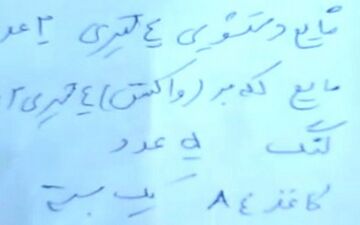 مایع دستشویی ٤ لیتری ۲ عدد
مایع لکه بر (واکنش) ٤ لیتری ۲
لنگ ۵ عدد
کاغذ A٤ یک بسته